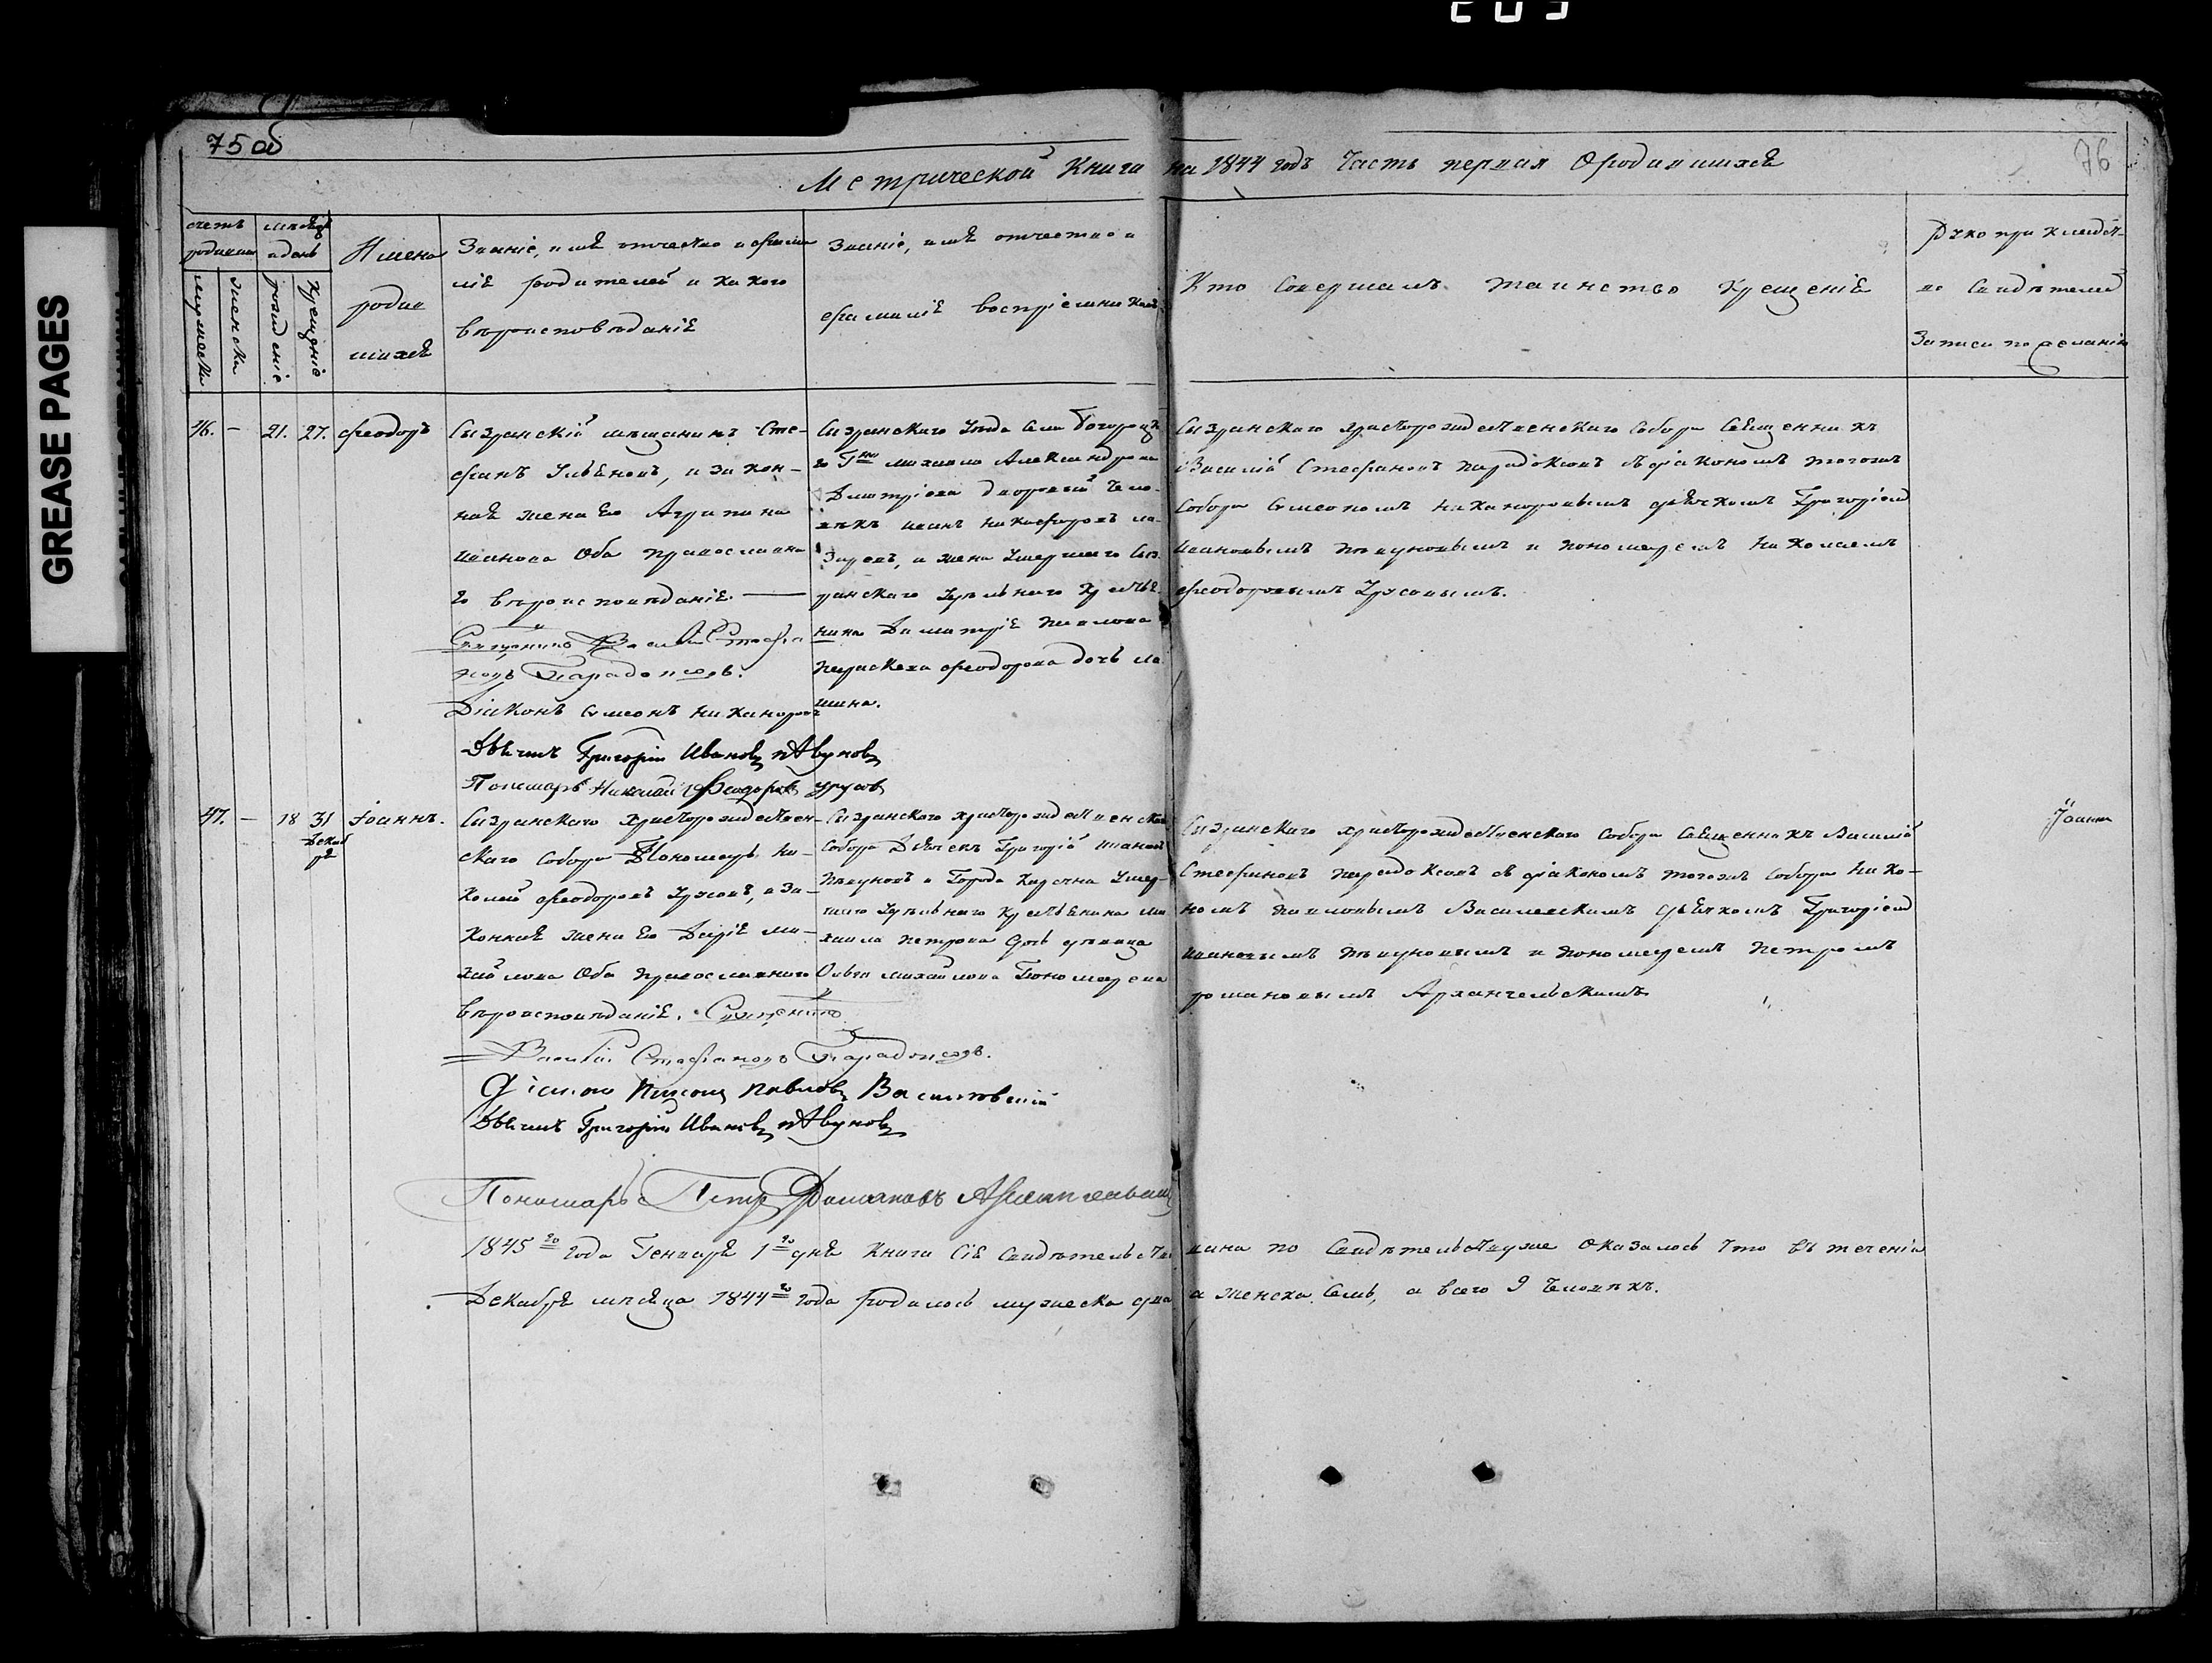 75 об
76
GREASE PAGES
Метрической Книги на 1844 годъ Часть первая О родившихся
счетъ родившихся
мѣсяцъ и день
мужеска
женска
рожденіе
крещеніе
Имена
родив
шихся
Званіе, имя отчество и фами
лія родителей и какого
вѣроисповѣданія
Званіе, имя отчество и
фамилія воспріемниковъ
Кто совершалъ таинство крещенія
Записи по желанію
46. — 21. 27. Феодоръ
Сызранскій мѣщанинъ Сте-
фанъ Ульяновъ, и закон-
ная жена его Агрипина
Иванова Оба православна
го вѣроисповѣданія. —
Священникъ Василій Стефа
новъ Парадоксовъ.
Діаконъ Симеонъ Никаноровъ
Дьячекъ Григорій Ивановъ Пѣвуновъ
Пономарь Николай Феодоровъ Урусовъ
Сызранскаго Уѣзда Села Богородск
го Гна Михаила Александрова
Дмитріева дворовый чело-
вѣкъ Иванъ Никифоровъ
и жена Умершаго Сыз
ранскаго Удѣльнаго Крестья
нина Димитрія Павлова
Параскева Феодорова дочь
Сызранскаго Христорождественскаго Собора Священникъ
Василій Стефановъ Парадоксовъ съ діакономъ тогожъ
Собора Симеономъ Никаноровымъ дьячкомъ Григоріем
Ивановымъ Пѣвуновымъ и пономаремъ Николаемъ
Феодоровымъ Урусовымъ.
47. — 18 31 Іоаннъ.
Декаб
ря
Сызранскаго Христорождествен-
скаго Собора Пономарь Ни-
колай Феодоровъ Урусовъ, и за-
конная жена его Дарія Ми-
хайлова Оба православнаго
вѣроисповѣданія. Священникъ
Василій Стефановъ Парадоксовъ.
Діаконъ Никонъ Павловъ Василевскій
Дьячекъ Григорій Ивановъ Пѣвуновъ
Пономарь Петръ Романовъ Архангельскій
Сызранскаго Христорождественскаго
Собора Дьячекъ Григорій Ивановъ
Пѣвуновъ и Города Умер-
шаго Удѣльнаго Крестьянина Ми
хаила Петрова дочь дѣвица
Ольга Михайлова Пономарева
Сызранскаго Христорождественскаго Собора Священникъ Василій
Стефановъ Парадоксовъ съ діакономъ тогожъ Собора Нико-
номъ Павловымъ Василевскимъ дьячкомъ Григоріем
Ивановымъ Пѣвуновымъ и пономаремъ Петромъ
Романовымъ Архангельскимъ
Іоаннъ
1845го года Генваря 1го дня Книга Сія Свидѣтельство вана по Свидѣтельству же оказалось что въ теченіи
Декабря мѣсяца 1844го года родилось мужеска два а женска Семь, а всего 9 человѣкъ.